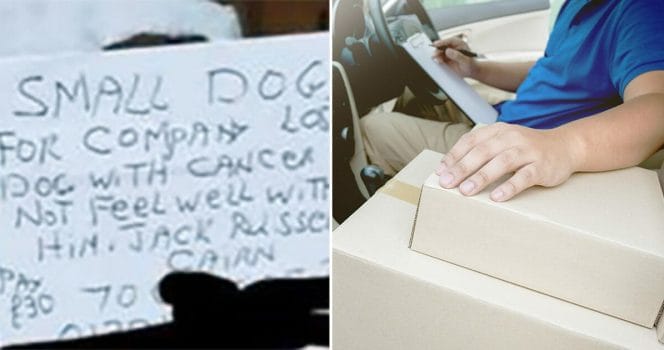 SMALL DOG
FOR COMPANY
DOG WITH CANCER
NOT FEEL WELL WITH
HIM. JACK RUSSE
CAIRN
PAY
£30 70